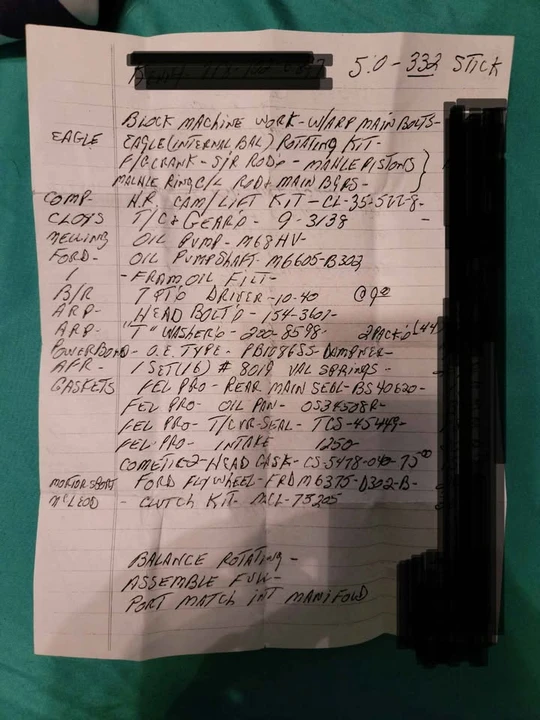 5.0-332 STICK
BLOCK MACHINE WORK-W/ARP MAIN BOLTS-
EAGLE EAGLE (INTERNAL BAL) ROTATING KIT-
F/C CRANK-S/R RODS-MAHLE PISTONS
MAHLE RING C/L ROD+MAIN BGRS-
COMP- H.R. CAM/LIFT KIT-CL-35-522-8-
CLOYS T/C+GEARS-9-3138 -
MELLING OIL PUMP-M68HV-
FORD- OIL PUMPSHAFT-M6605-B302
1 -FRAM OIL FILT-
B/R 7 QTS DRIVEN-10-40
ARP- HEAD BOLTS-154-3601-
ARP- "T" WASHERS-200-8598- 2 PACKS (44
POWERBOND-O.E. TYPE-PB1086SS-DAMPNER-
AFR- 1 SET(16) # 8019 VAL SPRINGS-
GASKETS FEL PRO-REAR MAIN SEAL-BS40620-
FEL PRO-OIL PAN-OS34508R-
FEL PRO-T/CVR-SEAL-TCS-45449-
FEL-PRO-INTAKE 1250-
COMETIC-2-HEAD GASK-CS-5478-040-75⁰⁰
MOTORSPORT FORD FLYWHEEL-FRDM6375-D302-B-
McLEOD - CLUTCH KIT-MCL-75205
BALANCE ROTATING-
ASSEMBLE FULL-
PORT MATCH INT MANIFOLD